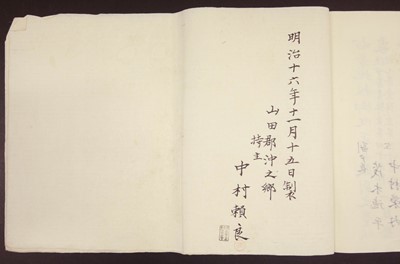 明治十六年十一月十五日製
山田郡沖之郷
持主
中村頼良